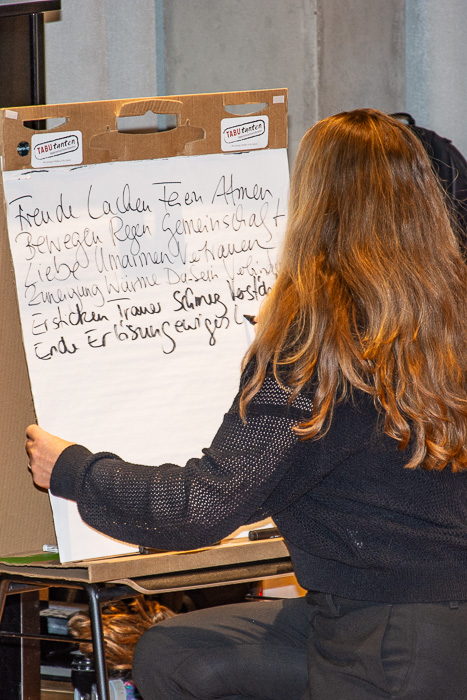 TABUtanten TABUtanten
Freude Lachen Feiern Atmen
Bewegen Regen Gemeinschaft
Liebe Umarmen Vertrauen
Zuneigung Wärme Dasein
Ersticken Trauer Schmerz
Ende Erlösung ewiges L